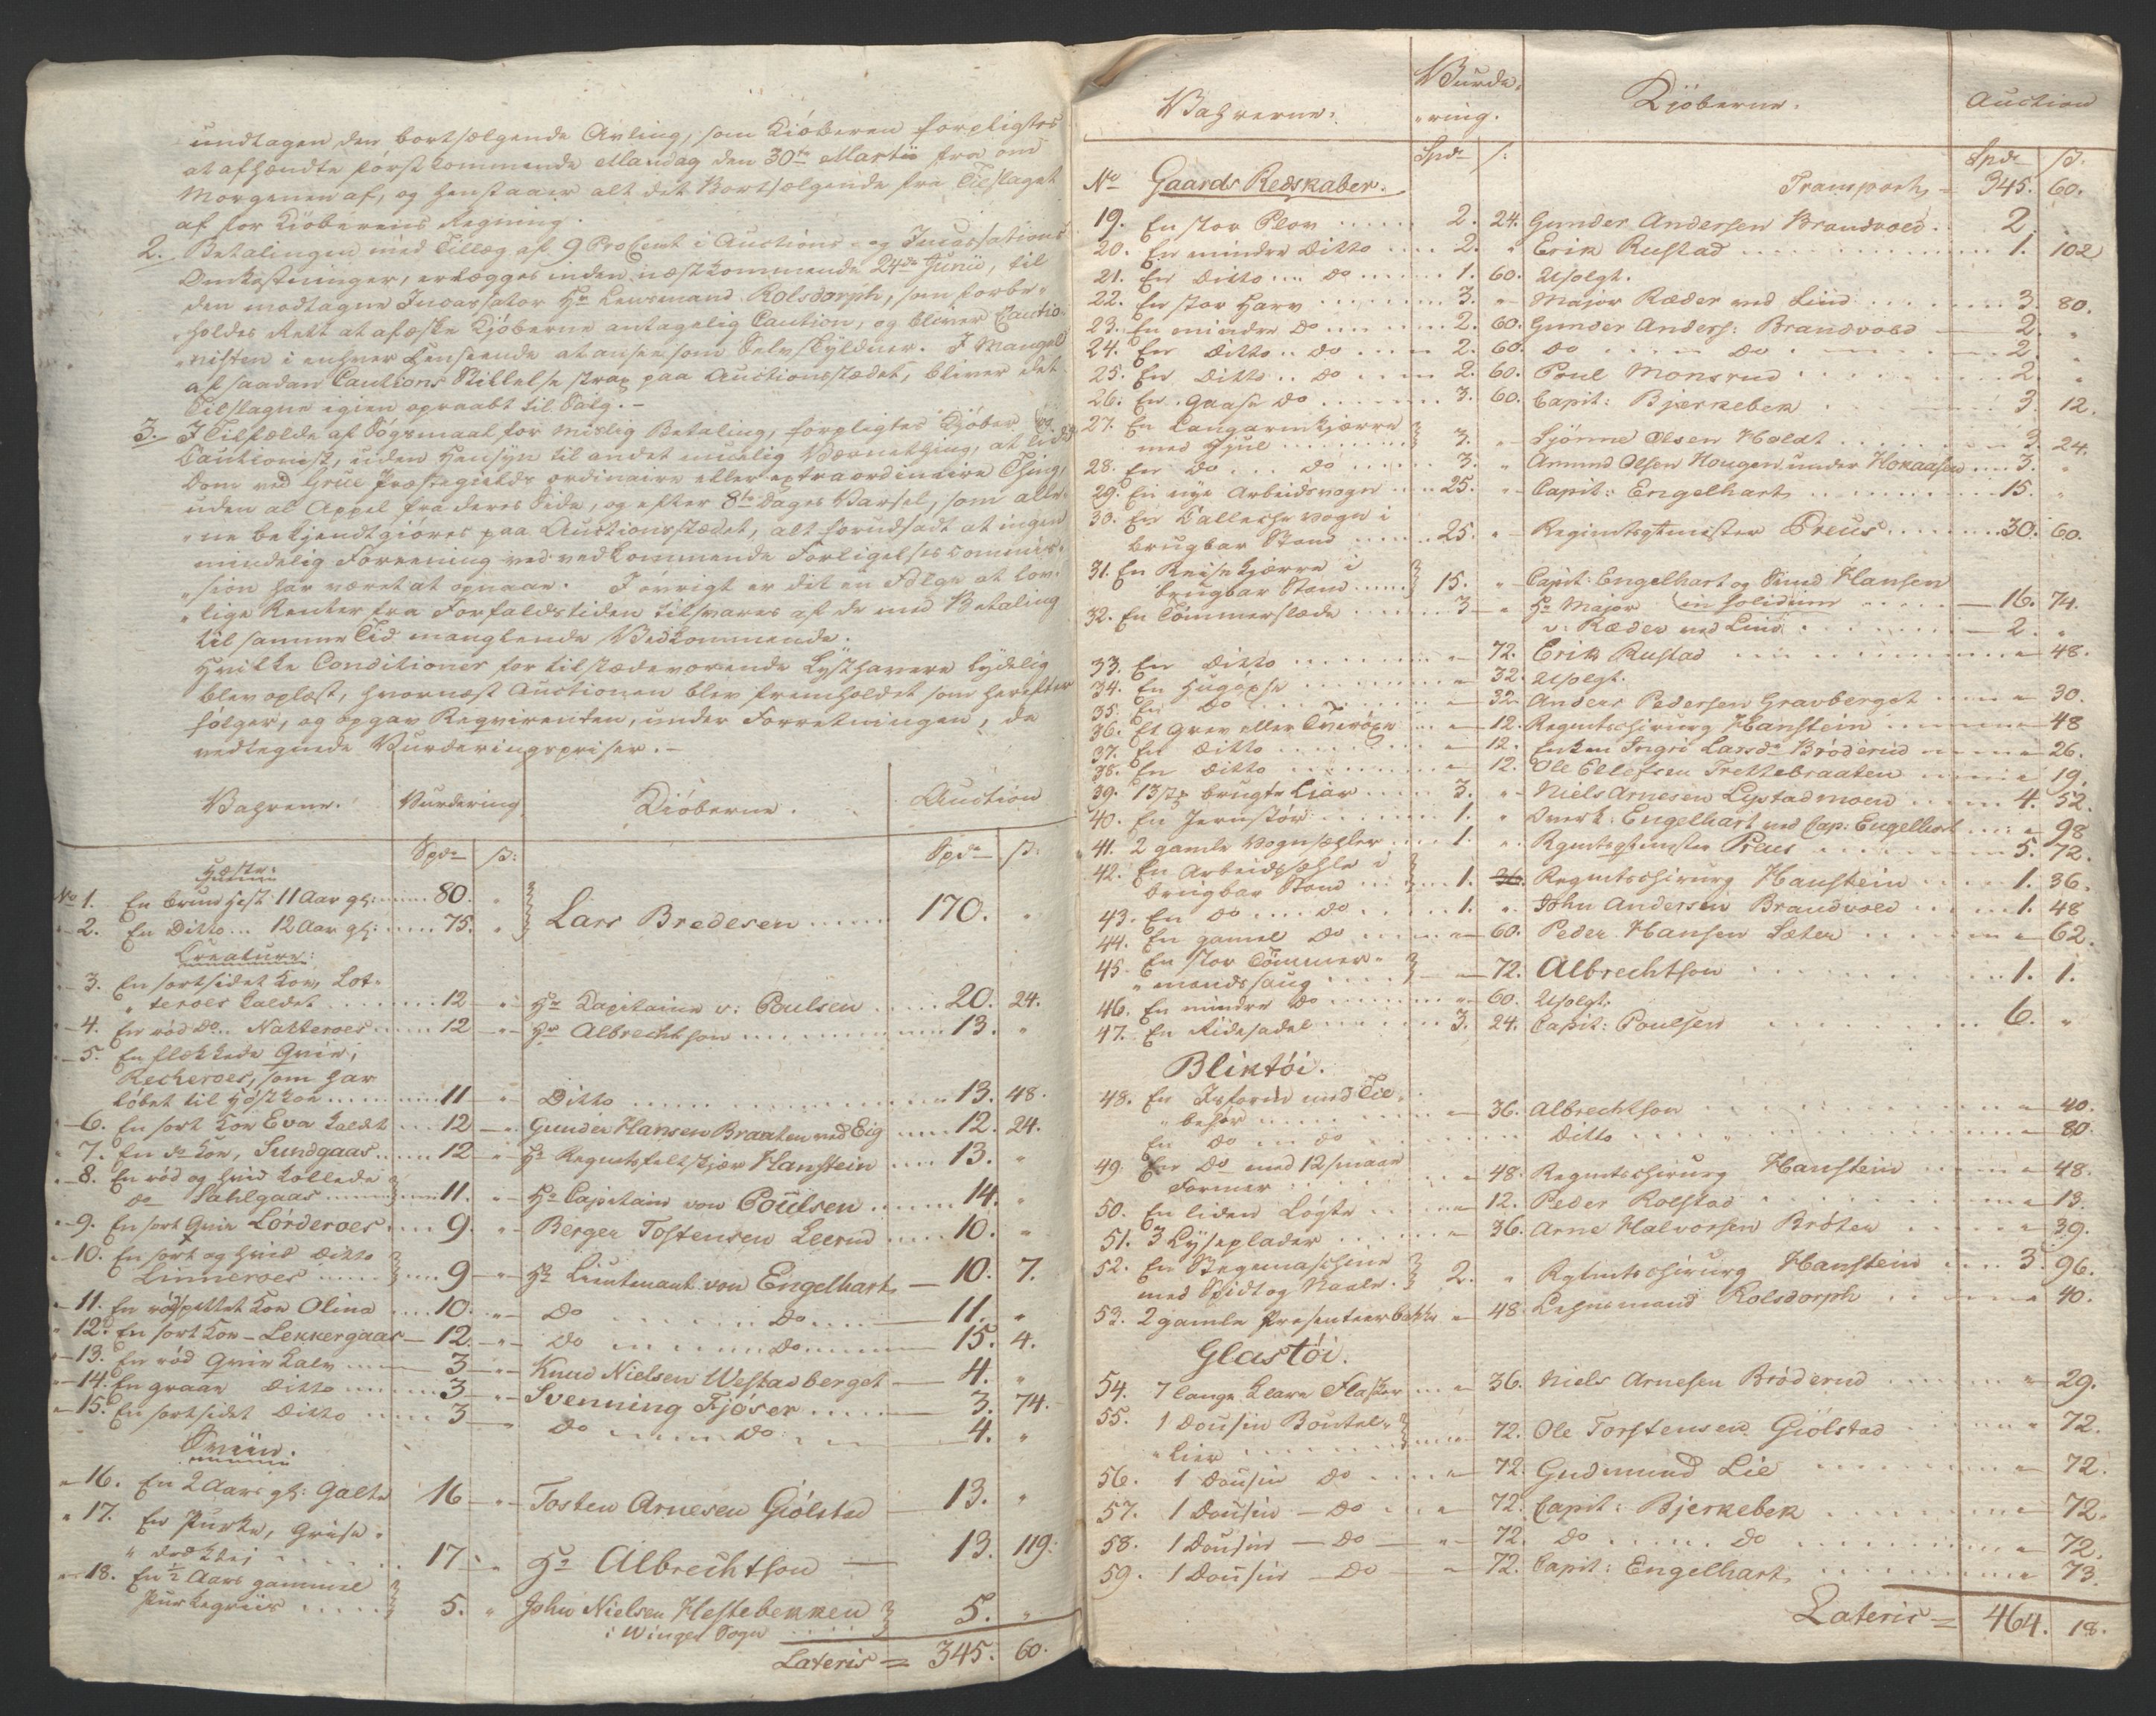 undtagen den bortsælgende Avling, som Kiöberen forpligtes
at afhændte först kommende Mandag den 30te Martii fra om
Morgenen af, og henstaaer alt det Bortsælgende fra Tilslaget
af for Kiöberens Regning.
2. Betalingen med Tillæg af 9 ProCent i Auctions- og Incassations
Omkostninger, erlægges inden næstkommende 24de Junii, til
den modtagne Incassator Hr Lensmand Rolsdorph, som forbe-
holdes Rett at afæske Kjöberne antagelig Caution, og bliver Cautio-
nisten i enhver Henseende at ansee som Selvskyldner. I Mangel
af saadan Cautions Stillelse strax paa Auctionsstædet, bliver det
Tilslagne igien opraabt til Salg.-
3. I Tilfælde af Sögsmaal for mislig Betaling, forpligtes Kjöber og
Cautionist, uden Hensyn til andet muelig Værnething, at lide
Dom ved Grue Præstegields ordinaire eller extraordinaire Thing,
uden al Appel fra deres Side, og efter 8te Dages Varsel, som alle-
ne bekjendtgiöres paa Auctionsstædet, alt forudsadt at ingen
mindelig Foreening ved vedkommende Forligelses commis-
sion har været at opnaae. I övrigt er dit en Fölge at lov-
lige Renter fra Forfaldstiden tilsvares af de med Betaling
til samme Tid manglende Vedkommende.
Hvilke Conditioner for tilstædeværende Lysthavere lydelig
blev oplæst, hvornæst Auctionen blev fremholdet som herefter
fölger, og opgav Reqvirenten, under Forretningen, de
vedtegnede Vurderingspriser.-
Vahrene. Vurdering Kiöberne. Auction
Spd ß: Spd ß:
Hæste:
No 1. En brun Hest 11 Aar gl: 80. " Lars Bredesen 170. "
2. En Ditto 12 Aar gl: 75. "
Creature:
3. En sortsidet Kov, Lot-
teroes kaldet 12 " Hr Kapitaine v: Poulsen 20. 24.
4. En röd Do Natteroes 12 " Hr Albrechtson 13. "
5. En flekkede Qvie,
Recheroes, som har
löbet til Höst Koe 11 " Ditto 13. 48.
6. En sort Kov Eva kaldt 12 " Gunder Hansen Braaten ved Eig 12. 24.
7. En do Kov, Sundgaas 12 " Hr Regmtsfeltskjær Hanstein 13. "
8. En röd og hvid kollede
do Sahlgaas 11. " Hr Capitain von Poulsen 14. "
9. En sort Qvie Lörderoes 9. " Berger Tostensen Leerud 10. "
10. En sort og hvid Ditto
Linneroes 9 " Hr Lieutenant von Engelhart 10. 7.
11. En rödspettet Kov Olina 10. " Do Do 11. "
12. En sort Kov - Lekkergaas 12. " Do Do 15. 4.
13. En röd Qvie Kalv 3 " Knud Nielsen Westadberget 4. "
14. En graae Ditto 3 " Svenning Fjöser 3. 74.
15. En sortsidet Ditto 3 " Do Do 4. "
Sviin.
16. En 2 Aars gl: Galte 16 " Tosten Arnesen Giölstad 13. "
17. En Purke, Grise-
17. " Hr Albrechtson 13. 119.
18. En ½ Aars gammel
Purkegriis 5. " John Nielsen Hestebekken 5. "
i Winger Sogn
Lateris = 345. 60.
Vahrerne. Vurde-
ring. Kjöberne. Auction
Spd ß: Spd ß.
No Gaards Redskaber. Transport = 345. 60.
19. En stor Plov 2. 24. Gunder Andersen Brandvold 2.
20. En mindre Ditto 2. " Erik Rustad 1. 102
21. En Ditto Do 1. 60. Usolgt.
22. En stor Harv 3. " Major Ræder ved Lind 3. 80.
23. En mindre Do 2. 60. Gunder Anders: Brandvold 2. "
24. En Ditto Do 2. 60. Do Do 2. "
25. En Ditto Do 2. 60. Poul Monsrud 2. "
26. En Gaase Do 3. 60. Capit: Bjerkebek 3. 12.
27. En Langarmkjærre
med Hjul 3. " Sjönne Olsen Holdt 3. 24.
28. En Do Do 3. " Amund Olsen Hougen under Hokaasen 3. "
29. En nye Arbeidsvogn 25. " Capit: Engelhart 15. "
30. En Callesche Vogn i
brugbar Stand 25. " Regimtsqtmester Preus 30. 60.
31. En Reise Kjærre i
brugbar Stand 15. " Capit: Engelhart og Smed Hansen
in solidum 16. 74.
32. En Tömmerslæde 3 " Hr Major
v: Ræder ved Lind 2. "
33. En Ditto " 72. Erik Rustad " 48.
34. En Hugöxse " 32. Usolgt.
35. En Do " 32 Anders Pedersen Gravberget " 30.
36. Et Grev eller Tveröxe " 12. Regmtschirurg Hanstein " 48
37. En Ditto " 12. Enken Ingri Larsdr Bröderud " 26.
38. En Ditto " 12. Ole Ellefsen Trettebraaten " 19.
39. 13 stk brugte Liar 3. " Niels Arnesen Lystadmoen 4. 52.
40. En Jernstör 1. " Qverk: Engelhart ved Cap: Engelhart " 98
41. 2 gamle Vognsæhler 1. " Rgmtsqtmester Preus 5. 72.
42. En Arbeidssæhle i
brugbar Stand 1. 36. Regmtschirurg Hanstein 1. 36.
43. En Do Do 1. " John Andersen Brandvold 1. 48
44. En gamel Do " 60. Peder Hansen Sæter " 62.
45. En stor Tömmer-
mandssaug " 72. Albrechtson 1. 1.
46. En mindre Do " 60. Usolgt.
47. En Ridesadel 3. 24. Capit: Poulsen 6. "
Bliktöi.
48. En Isform med Til-
behör " 36. Albrechtson " 40.
En Do Do Ditto " 80.
49. En Do med 12 smaae
Former " 48. Regmtschirurg Hanstein " 48.
50. En liden Lögte " 12. Peder Rolstad " 13.
51. 3 Lyseplader " 36. Arne Halvorsen Bröten " 39.
52. En Stegemaschine
med Spidt og Naale 2. " Rgtmtschirurg Hanstein 3. 96.
53. 2 gamle Presenteerbakke " 48 Lehnsmand Rolsdorph " 40.
Glastöi.
54. 7 lange klare Flasker " 36. Niels Arnesen Bröderud " 29.
55. 1 Dousin Boutel-
lier " 72. Ole Torstensen Giölstad " 72.
56. 1 Dousin Do " 72. Gudmund Lie " 72.
57. 1 Dousin - Do " 72. Capit: Bjerkebek " 72.
58. 1 Dousin - Do " 72. Do Do " 72.
59. 1 Dousin - Do " 72. Capit: Engelhart " 73.
Lateris = 464. 18.